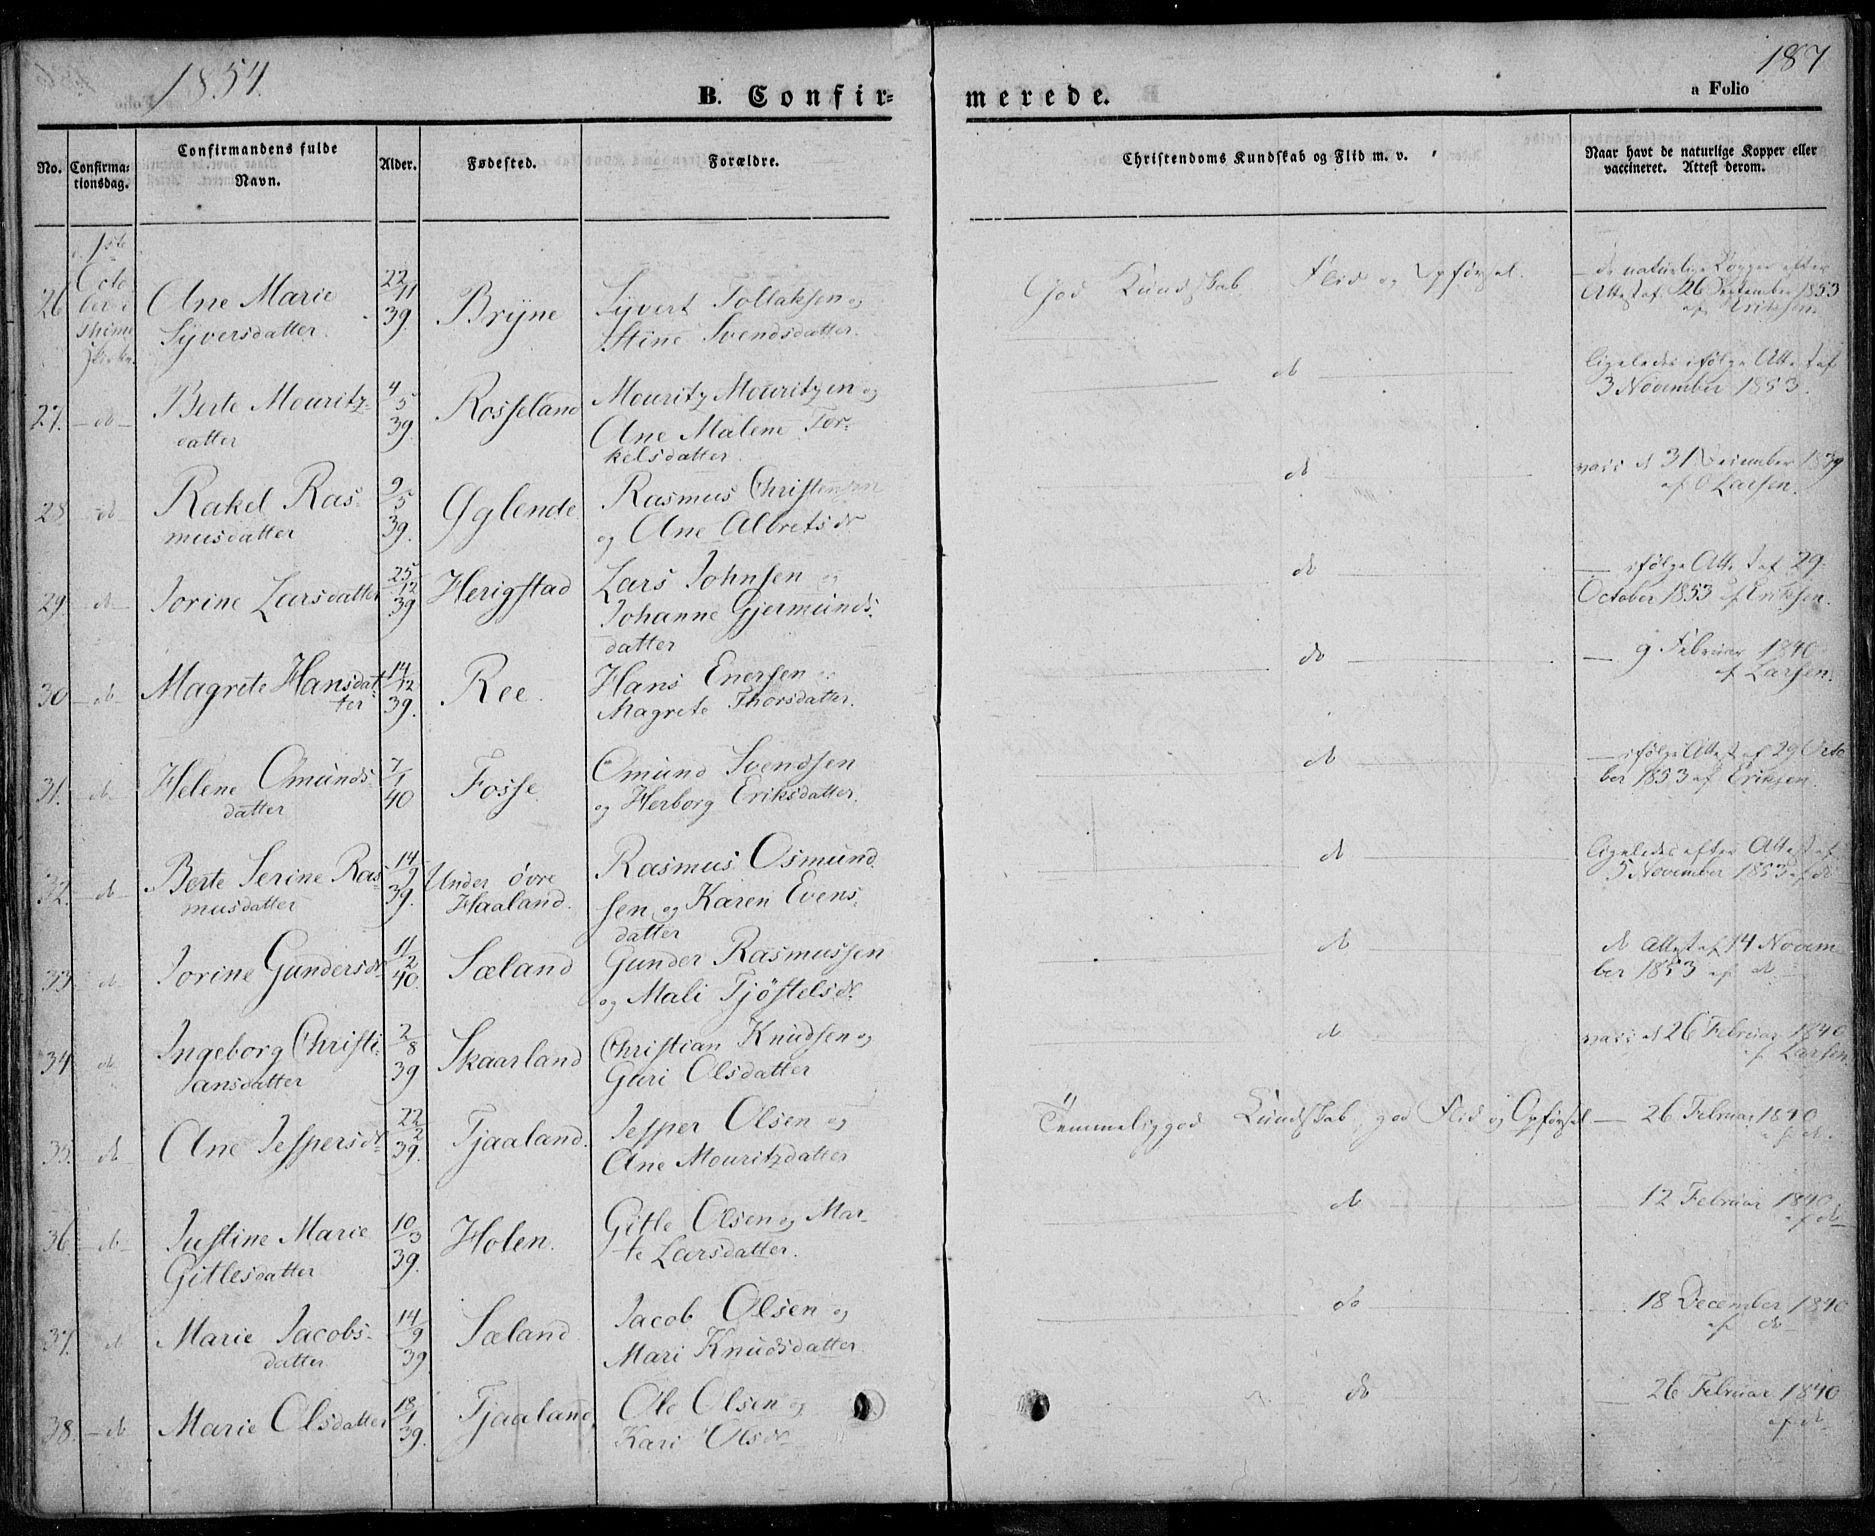 1854.
187
B. Confir=
merede.
a Folio
No.
Confirma=
tionsdag.
Confirmandens fulde
Navn.
Alder.
Fødested.
Forældre.
Christendoms Kundskab og Flid m. v.
Naar havt de naturlige Kopper eller
vaccineret. Attest derom.
1ste
Octo
ber i
Thime
Kirke
26
Ane Marie
Syversdatter
22/11
39
Bryne
Syvert Tollaksen og
Stine Svendsdatter.
God Kundskab Flid og Opførsel.
de naturlige Kopper efter
Attest af 26 September 1853
af Eriksen
27. do
Berte Mouritz-
datter
4/5
39.
Rosseland
Mouritz Mouritzen og
Ane Malene Tor-
kelsdatter.
do
ligeledes ifølge Attest af
3 November 1853.
28 do
Rakel Ras-
musdatter
9/5
39.
Øglende
Rasmus Christensen
og Ane Albretsdr
do
vacc d 31 December 1839
af O Larsen.
29. do
Jorine Larsdatter
25/12
39
Herigstad
Lars Johnsen og
Johanne Gjermunds-
datter
do
ifølge Attest af 29.
October 1853 af Eriksen.
30 do
Magrete Hansdat-
ter
14/12
39.
Ree.
Hans Enersen og
Magrete Thorsdatter.
do
9 Februar 1840
af Larsen.
31. do
Helene Omunds-
datter
7/1
40
Fosse
Omund Svendsen
og Herborg Eriksdatter.
do
ifølge Attest af 29 Octo
ber 1853 af Eriksen.
32. do
Berte Serine Ras-
musdatter
14/9
39.
Under øvre
Haaland.
Rasmus Osmund
sen og Karen Evens-
datter
do
ligeledes efter Attest af
5 November 1853 af do
33 do
Jorine Gundersdr
11/2
40.
Sæland
Gunder Rasmussen
og Mali Tjøstelsdr
do
do Attest af 14 Novem-
ber 1853 af do
34 do
Ingeborg Christi-
ansdatter
2/8
39
Skaarland
Christian Knudsen og
Guri Olsdatter
do
vacc d 26 Februar 1840
af Larsen
35. do
Ane Jespersdr
22/2
39.
Tjaaland.
Jesper Olsen og
Ane Mouritzdatter
Temmelig god Kundskab, god Flid og Opførsel
26 Februar 1840
af do.
36 do
Justine Marie
Gitlesdatter
10/3
39.
Holen.
Gitle Olsen og Mar-
te Larsdatter.
do
12 Februar 1840
af do
37. do
Marie Jacobs-
datter
14/9
39
Sæland
Jacob Olsen og
Mari Knudsdatter
do
18 December 1840
af do
38. do
Marie Olsdatter
18/1
39.
Tjaaland,
Ole Olsen og
Kari Olsdr
do
26 Februar 1840
af do